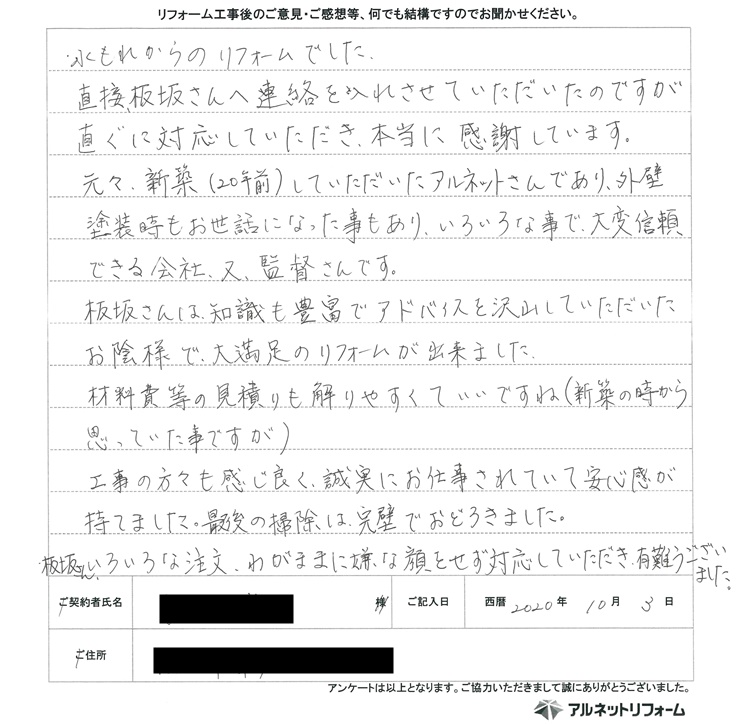 リフォーム工事後のご意見・ご感想等、何でも結構ですのでお聞かせください。
水もれからのリフォームでした。
直接、板坂さんへ連絡を入れさせていただいたのですが
直ぐに対応していただき、本当に感謝しています。
元々、新築(20年前)していただいたアルネットさんであり、外壁
塗装時もお世話になった事もあり、いろいろな事で、大変信頼
できる会社、又、監督さんです。
板坂さんは、知識も豊富でアドバイスを沢山していただいた
お陰様で、大満足のリフォームが出来ました。
材料費等の見積りも解りやすくていいですね(新築の時から
思っていた事ですが)
工事の方々も感じ良く、誠実にお仕事されていて安心感が
持てました。最後の掃除は、完璧でおどろきました。
板坂さん、いろいろな注文、わがままに嫌な顔をせず対応していただき、有難うござい
ました。
ご契約者氏名 様 ご記入日 西暦 2020年 10月 3日
ご住所
アンケートは以上となります。ご協力いただきまして誠にありがとうございました。
アルネットリフォーム